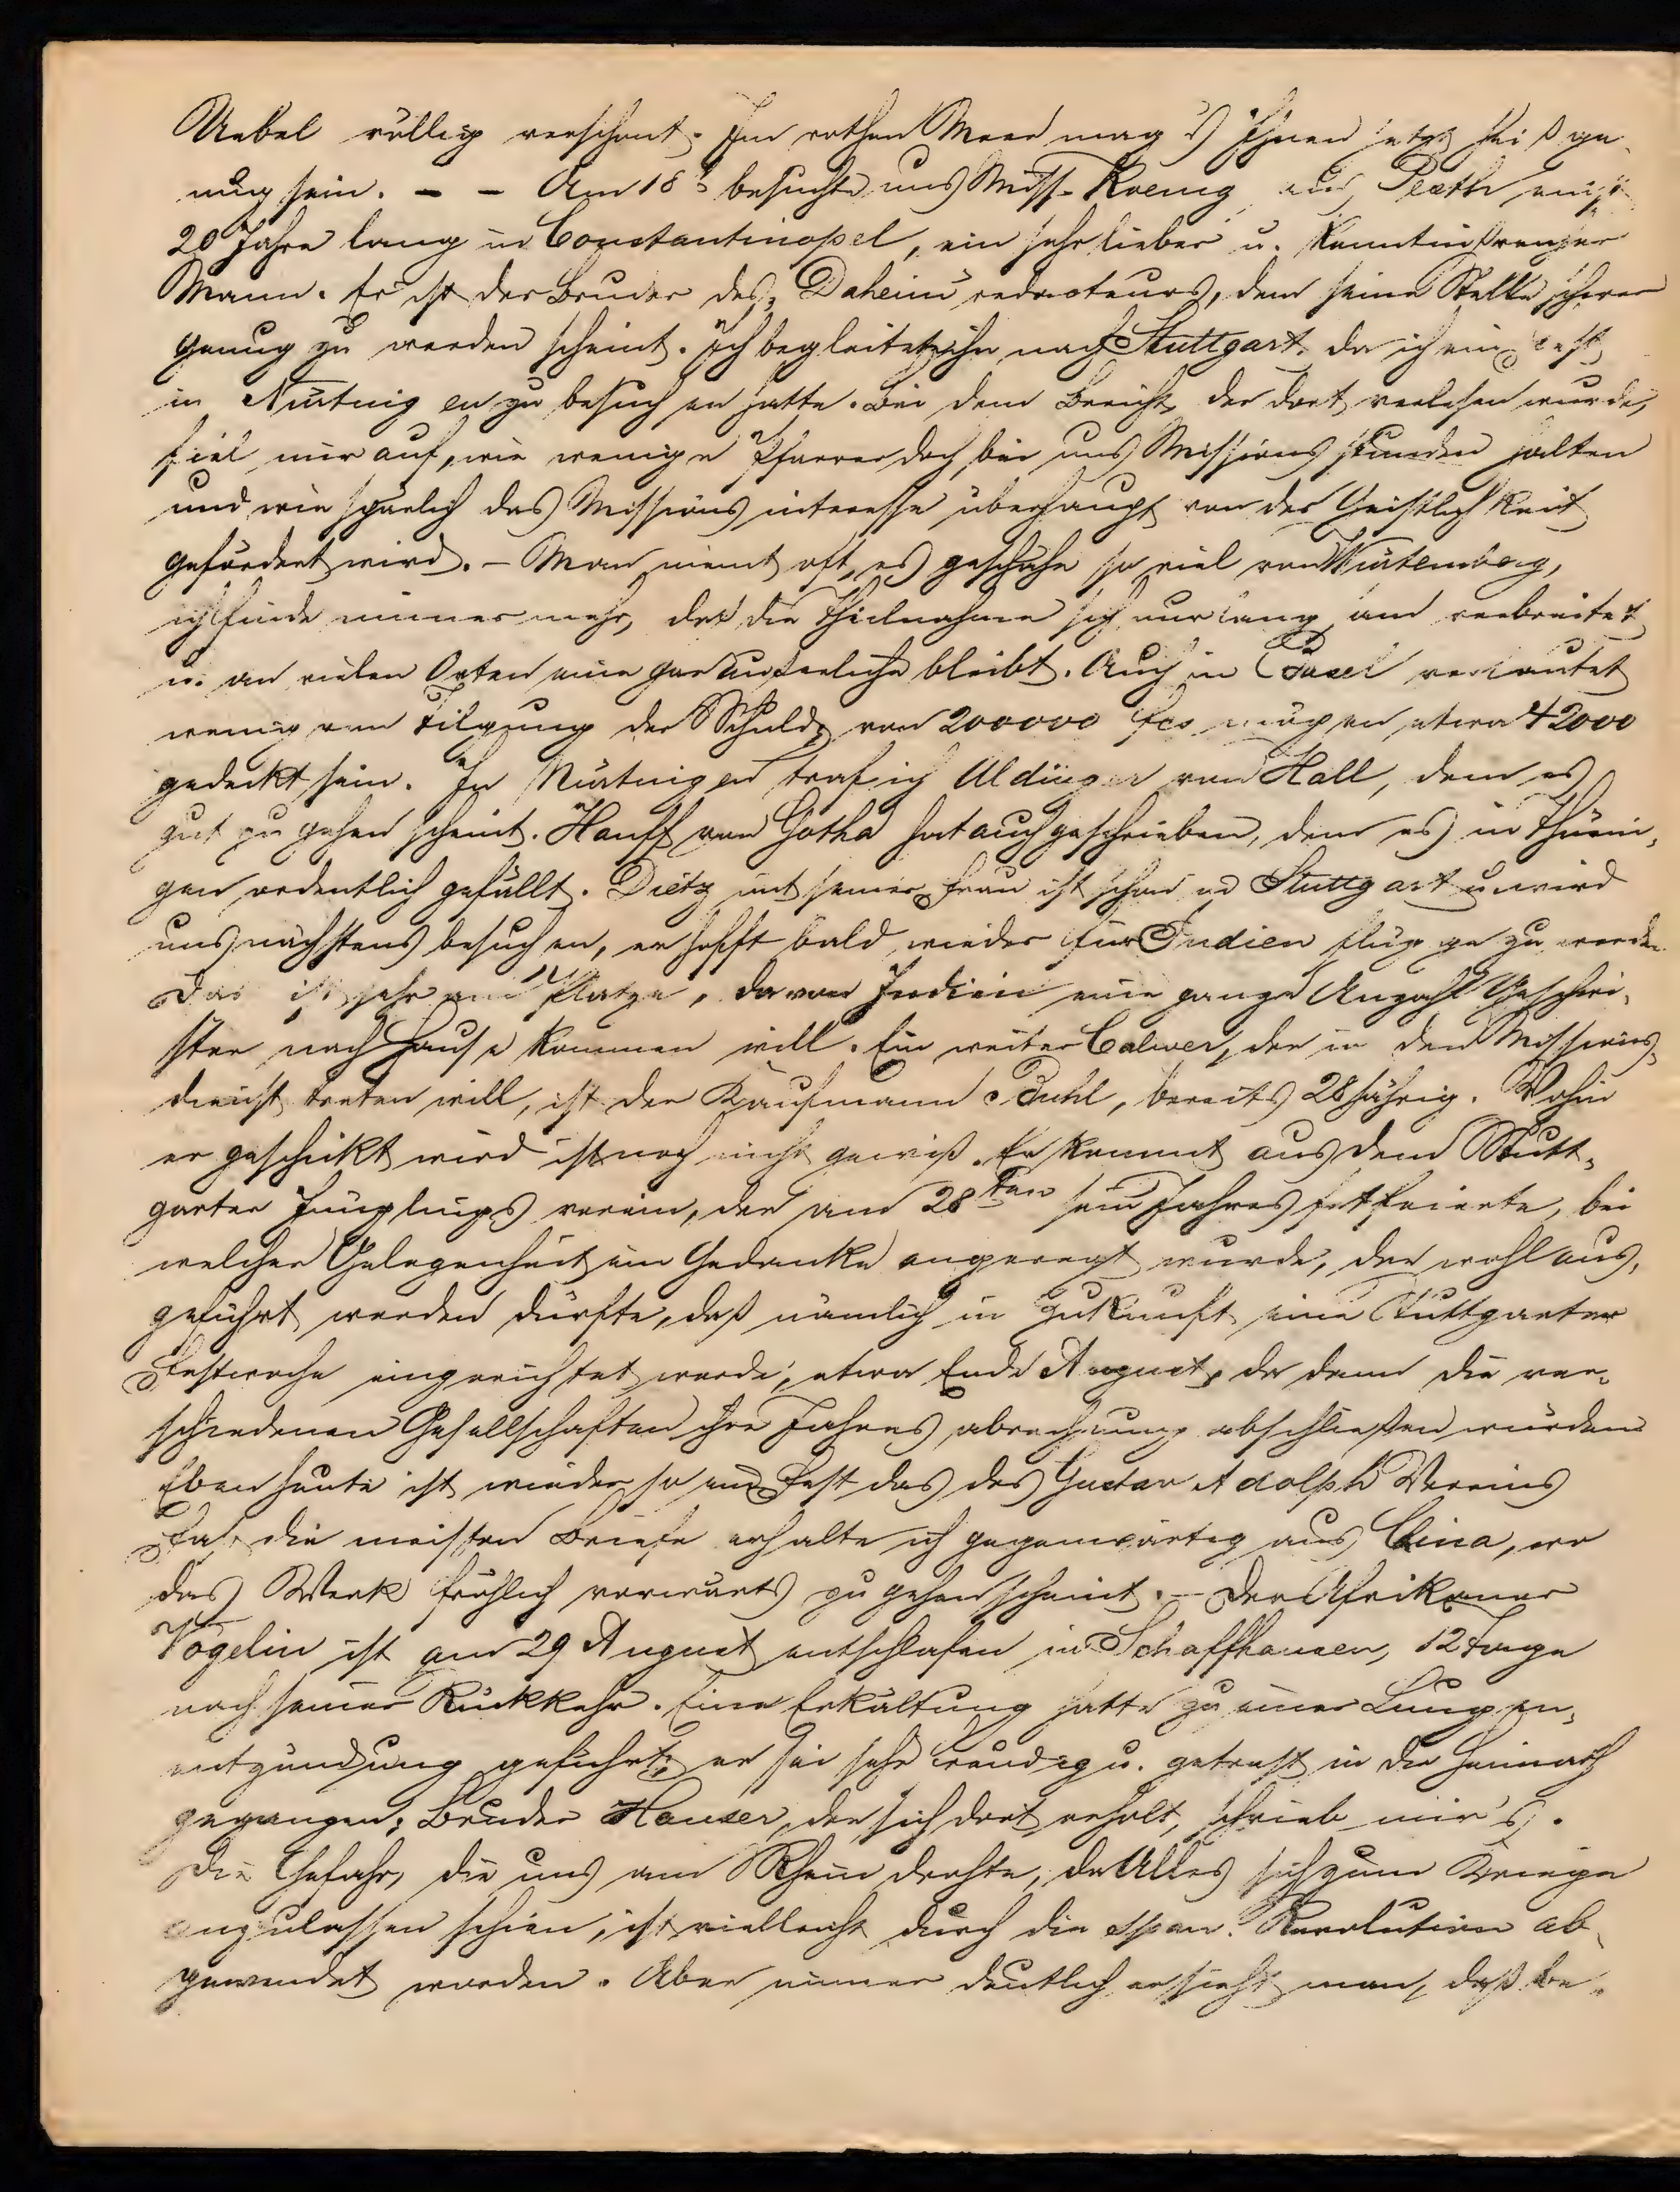 Uebel völlig verschont. Im rothen Meer mag's Ihnen jetzt heiß ge-
nug sein. – – Am 18t besuchte uns Miss. Koenig aus Pesth, einst
20 Jahre lang in Constantinopel, ein sehr lieber u. kenntnißreicher
Mann. Er ist der Bruder des Daheim redacteurs, dem seine Stelle schwer
genug zu werden scheint. Ich begleitete ihn nach Stuttgart, da ich ein Fest
in Nürtingen zu besuchen hatte. Bei dem Bericht, der dort verlesen wurde,
fiel mir auf, wie wenige Pfarrer doch bei uns Missionsstunden halten
und wie spärlich das Missionsinteresse überhaupt von der Geistlichkeit
gefördert wird. – Man meint oft, es geschehe so viel von Würtemberg,
ich finde immer mehr, daß die Theilnahme sich nur langsam verbreitet
u. an vielen Orten eine gar äußerliche bleibt. Auch in Basel verlautet
wenig von Tilgung der Schuld, von 200000 fcs mögen etwa 42000
gedeckt sein. In Nürtingen traf ich Aldinger von Hall, dem es
gut zu gehen scheint. Hauff von Gotha hat auch geschrieben, dem es in Thürin-
gen ordentlich gefällt. Dietz mit seiner Frau ist schon in Stuttgart u. wird
uns nächstens besuchen, er hofft bald wieder für Indien flügge zu werden
Das ist sehr am Platze, da von Indien eine ganze Anzahl Geschwi-
ster nach Hause kommen will. Ein weiter Calwer, der in den Missions-
dienst treten will, ist der Kaufmann Buhl, bereits 28jährig. Wohin
er geschickt wird ist noch nicht gewiß. Er kommt aus dem Stutt-
garter Jünglingsverein, der am 28ten sein Jahresfest feierte, bei
welcher Gelegenheit ein Gedanke angeregt wurde, der wohl aus-
geführt werden dürfte, daß nämlich in Zukunft eine Stuttgarter
Festwoche eingerichtet werde, etwa Ende August, da dann die ver-
schiedenen Gesellschaften ihre Jahresabrechnung abschließen würden
Eben heute ist wieder so ein Fest das des Gustav Adolph Vereins
Fast die meisten Briefe erhalte ich gegenwärtig aus China, wo
das Werk fröhlich vorwärts zu gehen scheint. – Der Afrikaner
Vögelin ist am 29 August entschlafen in Schaffhausen, 12 Tage
nach seiner Rückkehr. Eine Erkältung hatte zu einer Lungen-
entzündung geführt; er sei sehr freudig u. getrost in die Heimath
gegangen; Bruder Hauser, der sich dort erholt, schrieb mir's.
Die Gefahr, die uns am Rhein drohte, da Alles sich zum Kriege
anzulassen schien, ist vielleicht durch die span. Revolution ab-
gewendet worden. Aber immer deutlich ersieht man, daß be-